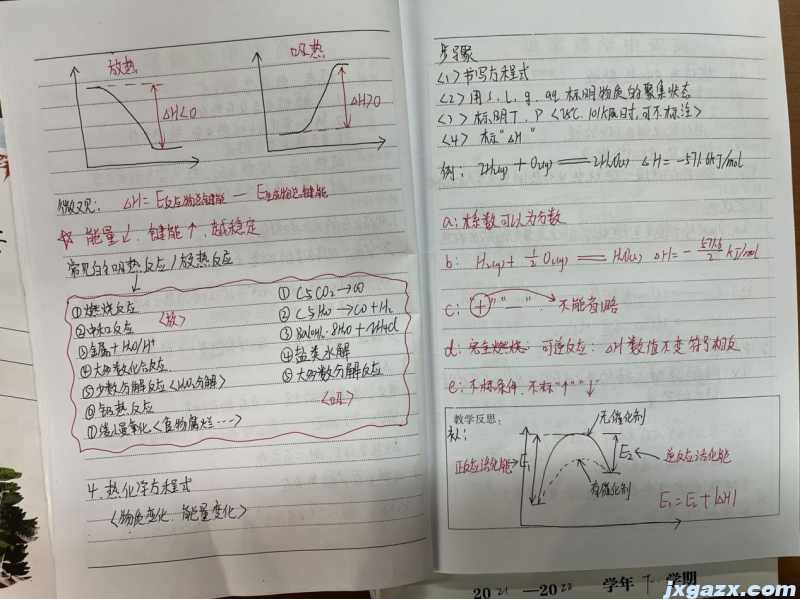 放热
ΔH<0
吸热
ΔH>0
微观: ΔH=E反应物总键能 — E生成物总键能
☆ 能量↓. 键能↑. 越稳定
常见的吸热反应/放热反应
①燃烧反应
②中和反应 <放>
③金属+H₂O/H⁺
④大多数化合反应
⑤少数分解反应<H₂O₂分解>
⑥铝热反应
⑦缓慢氧化<食物腐烂…>
① C与CO₂→CO
② C与H₂O→CO+H₂
③ Ba(OH)₂·8H₂O+NH₄Cl
④ 盐类水解
⑤ 大多数分解反应
<吸>
4. 热化学方程式
<物质变化. 能量变化>
步骤
<1>书写方程式
<2>用s. l. g. aq 标明物质的聚集状态
<3>标明T. P <25℃. 101kPa时,可不标注>
<4> 标"ΔH"
例: 2H₂(g)+O₂(g)══2H₂O(l) ΔH=-571.6kJ/mol
a:系数可以为分数
b: H₂(g)+½O₂(g)══H₂O(l) ΔH=-571.6/2 kJ/mol
c: "+""—" 不能省略
d: 可逆反应: ΔH数值不变 符号相反
e:不标条件. 不标"↑""↓"
教学反思:
无催化剂
正反应活化能 E₁
E₂ 逆反应活化能
有催化剂
E₁=E₂+|ΔH|
2021—2022 学年 下 学期
jxgazx.com